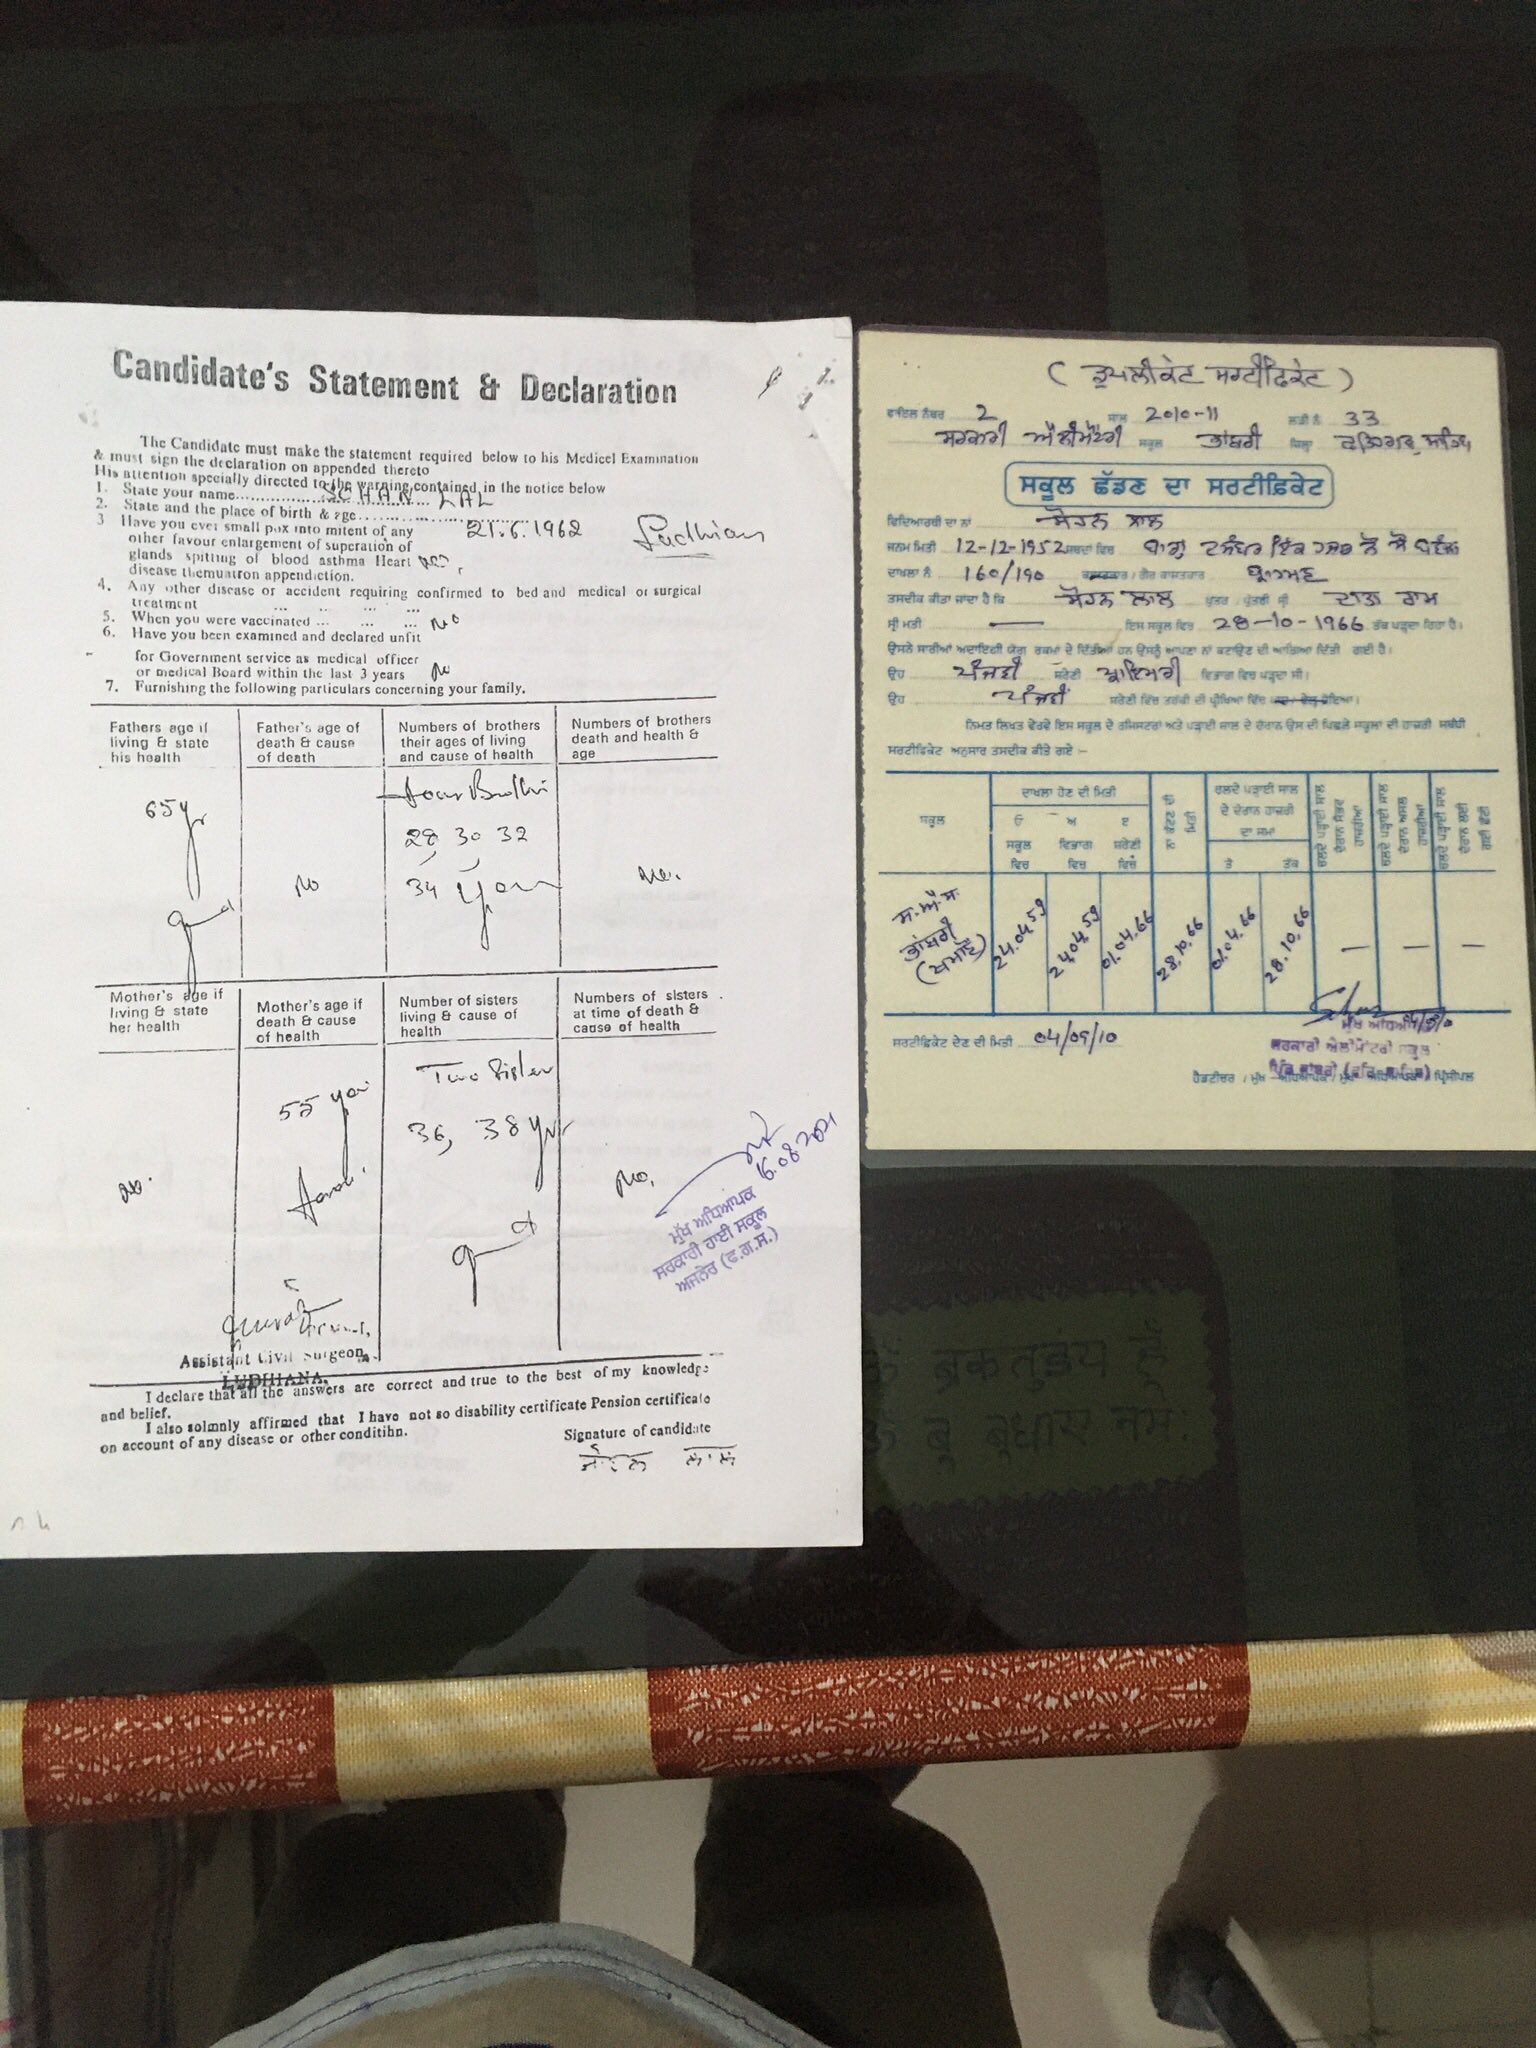 Candidate's Statement & Declaration
The Candidate must make the statement required below to his Medicel Examination
& must sign the declaration on appended thereto
His attention specially directed to the warning contained in the notice below
1. State your name................ SOHAN LAL
2. State and the place of birth & age................ 21.6.1962 Ludhiana
3 Have you ever small pox into mitent of any
other favour enlargement of superation of
glands spitting of blood asthma Heart
disease themuatron appendiction.
4. Any other disease or accident requiring confirmed to bed and medical or surgical
treatment ... ... ... ...
5. When you were vaccinated ... ... ... No
6. Have you been examined and declared unfit
for Government service as medical officer
or medical Board within the last 3 years No
7. Furnishing the following particulars concerning your family.
Fathers age if living & state his health
Father's age of death & cause of death
Numbers of brothers their ages of living and cause of health
Numbers of brothers death and health & age
65 yr
No
28, 30 32
34 Years
No.
Mother's age if living & state her health
Mother's age if death & cause of health
Number of sisters living & cause of health
Numbers of sisters at time of death & cause of health
No.
55 year
Two Sister
36, 38 yr
No.
16.08.2021
ਮੁੱਖ ਅਧਿਆਪਕ
ਸਰਕਾਰੀ ਹਾਈ ਸਕੂਲ
ਅਜਨੇਰ (ਫ.ਗ.ਸ.)
Assistant Civil Surgeon,
LUDHIANA.
I declare that all the answers are correct and true to the best of my knowledge
and belief.
I also solmnly affirmed that I have not so disability certificate Pension certificate
on account of any disease or other conditihn.
Signature of candidate
ਸੋਹਨ ਲਾਲ
( ਡੁਪਲੀਕੇਟ ਸਰਟੀਫਿਕੇਟ )
ਫਾਇਲ ਨੰਬਰ 2 ਸਾਲ 2010-11 ਲੜੀ ਨੰ 33
ਸਰਕਾਰੀ ਐਲੀਮੈਂਟਰੀ ਸਕੂਲ ਤਾਂਬਰੀ ਜ਼ਿਲ੍ਹਾ ਫਤਿਹਗੜ੍ਹ ਸਾਹਿਬ
ਸਕੂਲ ਛੱਡਣ ਦਾ ਸਰਟੀਫ਼ਿਕੇਟ
ਵਿਦਿਆਰਥੀ ਦਾ ਨਾਂ ਸੋਹਨ ਲਾਲ
ਜਨਮ ਮਿਤੀ 12-12-1952 ਸ਼ਬਦਾਂ ਵਿਚ ਬਾਰਾਂ ਦਸੰਬਰ ਇੱਕ ਹਜ਼ਾਰ ਨੌਂ ਸੌ ਬਵੰਜਾ
ਦਾਖਲਾ ਨੰ 160/190 ਗੈਰ ਕਾਸ਼ਤਕਾਰ ਬ੍ਰਾਹਮਣ
ਤਸਦੀਕ ਕੀਤਾ ਜਾਂਦਾ ਹੈ ਕਿ ਸੋਹਨ ਲਾਲ ਪੁੱਤਰ / ਪੁੱਤਰੀ ਸ਼੍ਰੀ ਦਾਤਾ ਰਾਮ
ਸ਼੍ਰੀ ਮਤੀ — ਇਸ ਸਕੂਲ ਵਿਚ 28-10-1966 ਤੱਕ ਪੜ੍ਹਦਾ ਰਿਹਾ ਹੈ।
ਉਸਨੇ ਸਾਰੀਆਂ ਅਦਾਇਗੀ ਯੋਗ ਰਕਮਾਂ ਦੇ ਦਿੱਤੀਆਂ ਹਨ ਉਸਨੂੰ ਆਪਣਾ ਨਾਂ ਕਟਾਉਣ ਦੀ ਆਗਿਆ ਦਿੱਤੀ ਗਈ ਹੈ।
ਉਹ ਪੰਜਵੀਂ ਸ਼ਰੇਣੀ ਪ੍ਰਾਇਮਰੀ ਵਿਭਾਗ ਵਿਚ ਪੜ੍ਹਦਾ ਸੀ।
ਉਹ ਪੰਜਵੀਂ ਸ਼ਰੇਣੀ ਵਿੱਚ ਤਰੱਕੀ ਦੀ ਪ੍ਰੀਖਿਆ ਵਿੱਚ
ਨਿਮਤ ਲਿਖਤ ਵੇਰਵੇ ਇਸ ਸਕੂਲ ਦੇ ਰਜਿਸਟਰਾਂ ਅਤੇ ਪੜ੍ਹਾਈ ਸਾਲ ਦੇ ਦੌਰਾਨ ਉਸ ਦੀ ਪਿਛਲੇ ਸਕੂਲਾਂ ਦੀ ਹਾਜ਼ਰੀ ਸਬੰਧੀ
ਸਰਟੀਫਿਕੇਟ ਅਨੁਸਾਰ ਤਸਦੀਕ ਕੀਤੇ ਗਏ :-
ਸਕੂਲ
ਦਾਖਲਾ ਹੋਣ ਦੀ ਮਿਤੀ
ੳ ਅ ੲ
ਸਕੂਲ ਵਿਚ
ਵਿਭਾਗ ਵਿਚ
ਸ਼ਰੇਣੀ ਵਿਚ
ਨਾਂ ਕੱਟਣ ਦੀ ਮਿਤੀ
ਚਲਦੇ ਪੜ੍ਹਾਈ ਸਾਲ ਦੇ ਦੌਰਾਨ ਹਾਜ਼ਰੀ ਦਾ ਸਮਾਂ
ਤੋਂ ਤੱਕ
ਸ.ਐ.ਸ.
ਤਾਂਬਰੀ
24.04.59 24.04.59 01.04.66 28.10.66 01.04.66 28.10.66 — — —
ਸਰਟੀਫਿਕੇਟ ਦੇਣ ਦੀ ਮਿਤੀ 04/09/10
ਮੁੱਖ ਅਧਿਆਪਕ
ਸਰਕਾਰੀ ਐਲੀਮੈਂਟਰੀ ਸਕੂਲ
ਹੈਡਟੀਚਰ / ਮੁੱਖ ਅਧਿਆਪਕਾ / ਮੁੱਖ ਅਧਿਆਪਕ / ਪ੍ਰਿੰਸੀਪਲ